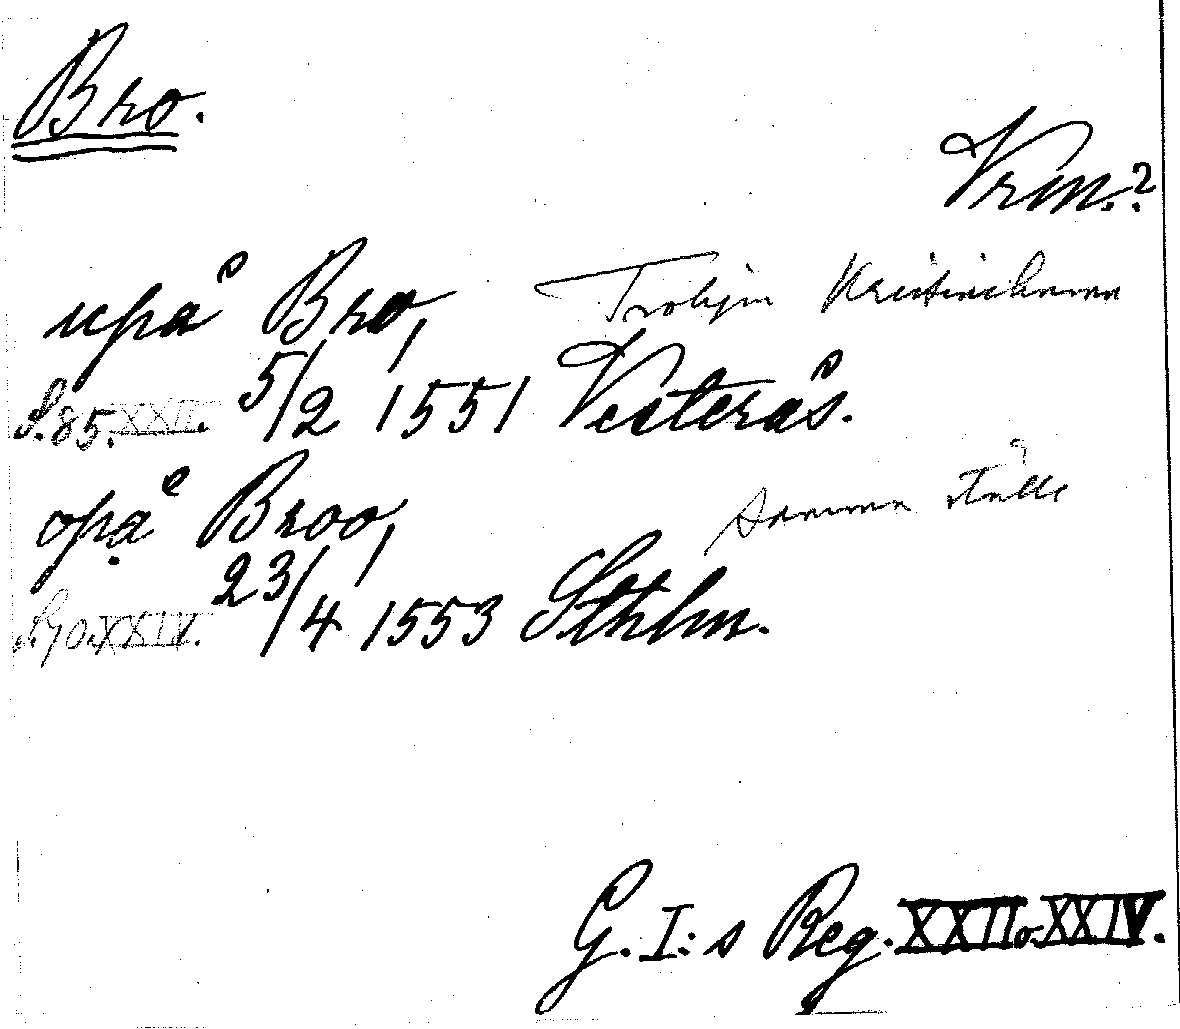 Bro.
Vrm.?
upå Bro, Trol­igen Kristinehamn
S.85.XXII. 5/2 1551 Vesterås.
opå Broo, samma ställe
S.90.XXIV. 23/4 1553 Sthlm.
G. I:s Reg. XXII o. XXIV.